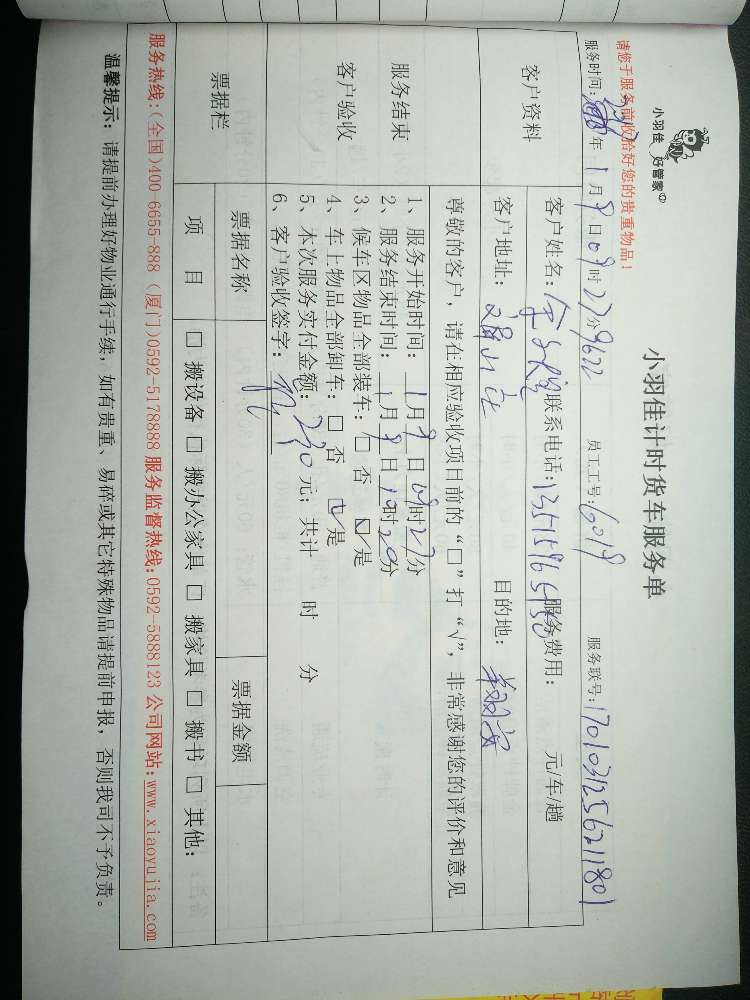 小羽佳 好管家
小羽佳计时货车服务单
请您于服务前收拾好您的贵重物品!
服务时间: 年 1月9日09时27分 9622 员工工号: 6019 服务联号: 1701031256211801
客户资料
客户姓名: 联系电话: 服务费用: 元/车/趟
客户地址: 目的地:
服务结束
客户验收
尊敬的客户,请在相应验收项目前的“□”打“√”,非常感谢您的评价和意见
1、服务开始时间: 1月9日09时27分
2、服务结束时间: 1月9日10时20分
3、候车区物品全部装车: □ 否 ☑ 是
4、车上物品全部卸车: □ 否 ☑ 是
5、本次服务实付金额: 230元; 共计 时 分
6、客户验收签字:
票据栏
票据名称 票据金额
项 目 □ 搬设备 □ 搬办公家具 □ 搬家具 □ 搬书 □ 其他:
服务热线:(全国)400-6655-888 (厦门)0592-5178888 服务监督热线:0592-5888123 公司网站:www.xiaoyujia.com
温馨提示: 请提前办理好物业通行手续,如有贵重、易碎或其它特殊物品请提前申报,否则我司不予负责。